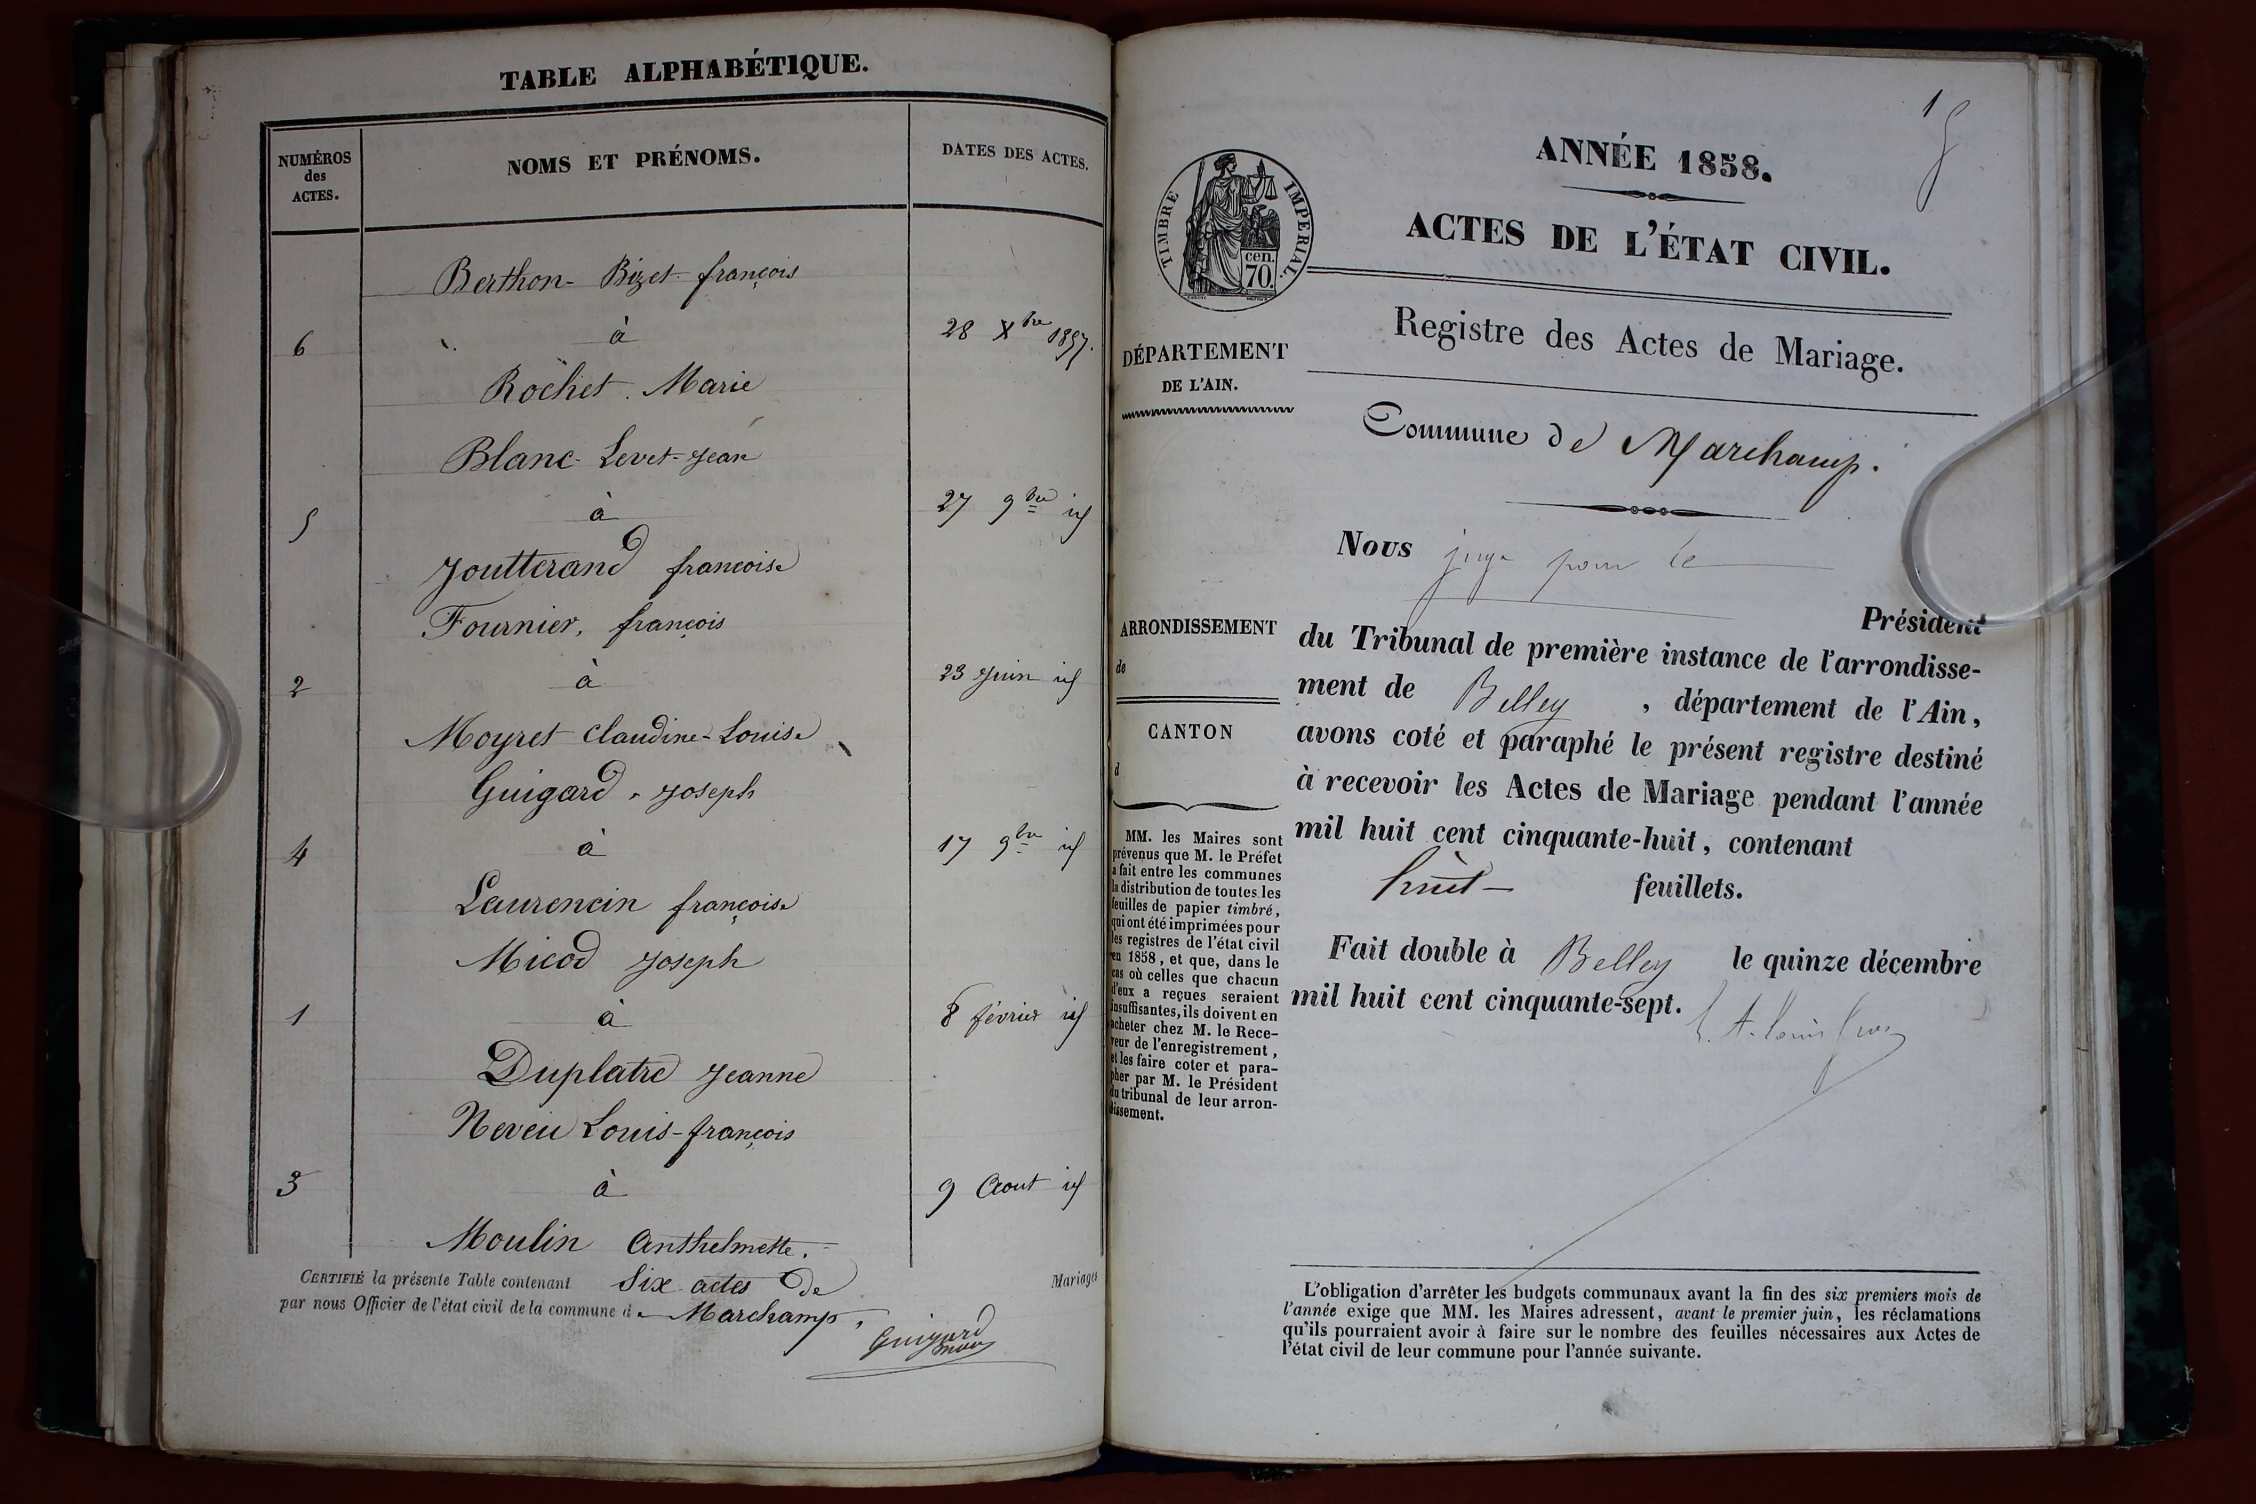 TABLE ALPHABÉTIQUE.
NUMÉROS
des
ACTES.
NOMS ET PRÉNOMS.
DATES DES ACTES.
Berthon-Bizet-françois
6 à 28 Xbre 1857.
Rochet. Marie
Blanc-Levet-Jean
5 à 27 9bre id
Joutterand francoise
Fournier, françois
2 à 23 Juin id
Moyret Claudine-Louise
Guigard, Joseph
4 à 17 9bre id
Laurencin françoise
Micod Joseph
1 à 8 février id
Duplatre Jeanne
Neveu Louis-françois
3 à 9 Aout id
Moulin Anthelmette.
CERTIFIÉ la présente Table contenant Six actes de Mariages
par nous Officier de l'état civil de la commune de Marchamp,
Guigard
maire
1
ANNÉE 1858.
ACTES DE L'ÉTAT CIVIL.
TIMBRE IMPERIAL.
cen.
70.
Registre des Actes de Mariage.
DÉPARTEMENT
DE L'AIN.
Commune de Marchamp.
Nous juge pour le
Président
ARRONDISSEMENT
de
CANTON
d
du Tribunal de première instance de l'arrondisse-
ment de Belley, département de l'Ain,
avons coté et paraphé le présent registre destiné
à recevoir les Actes de Mariage pendant l'année
mil huit cent cinquante-huit, contenant
huit feuillets.
Fait double à Belley le quinze décembre
mil huit cent cinquante-sept.
MM. les Maires sont
prévenus que M. le Préfet
a fait entre les communes
la distribution de toutes les
feuilles de papier timbré,
qui ont été imprimées pour
les registres de l'état civil
en 1858, et que, dans le
cas où celles que chacun
d'eux a reçues seraient
insuffisantes, ils doivent en
acheter chez M. le Rece-
veur de l'enregistrement,
et les faire coter et para-
pher par M. le Président
du tribunal de leur arron-
dissement.
L'obligation d'arrêter les budgets communaux avant la fin des six premiers mois de
l'année exige que MM. les Maires adressent, avant le premier juin, les réclamations
qu'ils pourraient avoir à faire sur le nombre des feuilles nécessaires aux Actes de
l'état civil de leur commune pour l'année suivante.